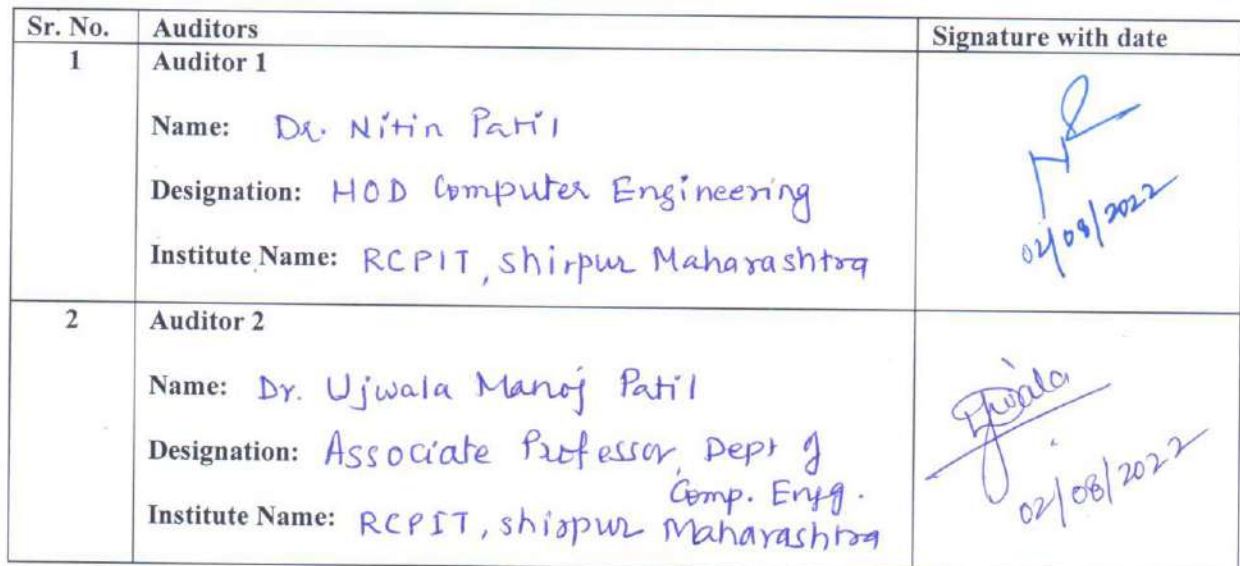 Sr. No. Auditors Signature with date
1 Auditor 1
Name: Dr. Nitin Patil
Designation: HOD Computer Engineering
Institute Name: RCPIT, Shirpur Maharashtra
02/08/2022
2 Auditor 2
Name: Dr. Ujwala Manoj Patil
Designation: Associate Professor, Dept of
Comp. Engg.
Institute Name: RCPIT, Shirpur Maharashtra
Ujwala
02/08/2022